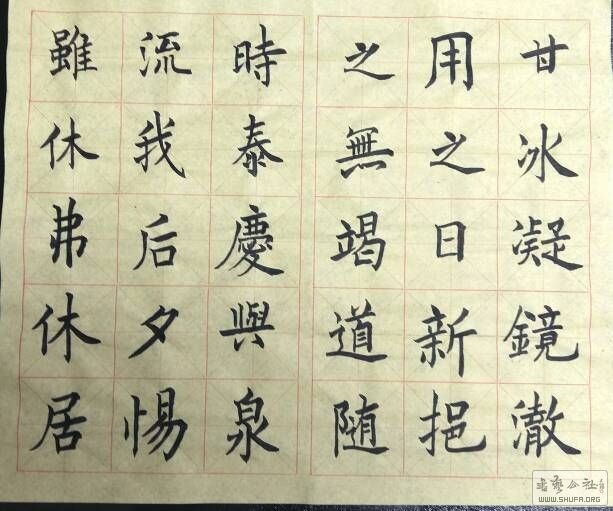 甘冰凝鏡澈
用之日新挹
之無竭道随
時泰慶與泉
流我后夕惕
雖休弗休居
WWW.SHUFA.ORG